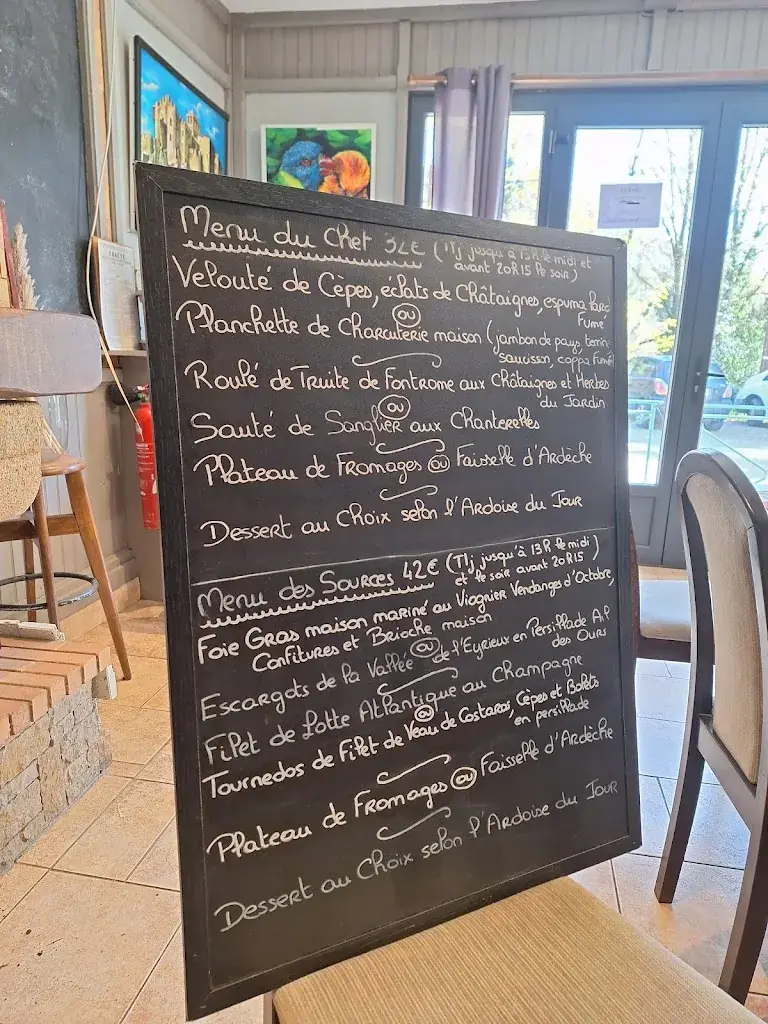 Menu du Chef 32€ (Tlj jusqu'à 13h le midi et
avant 20h15 le soir)
Velouté de Cèpes, éclats de Châtaignes, espuma lard
Fumé
ou
Planchette de Charcuterie maison (jambon de pays, terrin
saucisson, coppa Fumé
Roulé de Truite de Fontrome aux Châtaignes et Herbes
du Jardin
ou
Sauté de Sanglier aux Chanterelles
Plateau de Fromages ou Faisselle d'Ardèche
Dessert au Choix selon l'Ardoise du Jour
Menu des Sources 42€ (Tlj jusqu'à 13h le midi
et le soir avant 20h15)
Foie Gras maison mariné au Viognier Vendanges d'Octobre,
Confitures et Brioche maison
ou
Escargots de la Vallée de l'Eyrieux en Persillade Ail
des Ours
Filet de Lotte Atlantique au Champagne
ou
Tournedos de Filet de Veau de Costaros, Cèpes et Bolets
en persillade
Plateau de Fromages ou Faisselle d'Ardèche
Dessert au Choix selon l'Ardoise du Jour